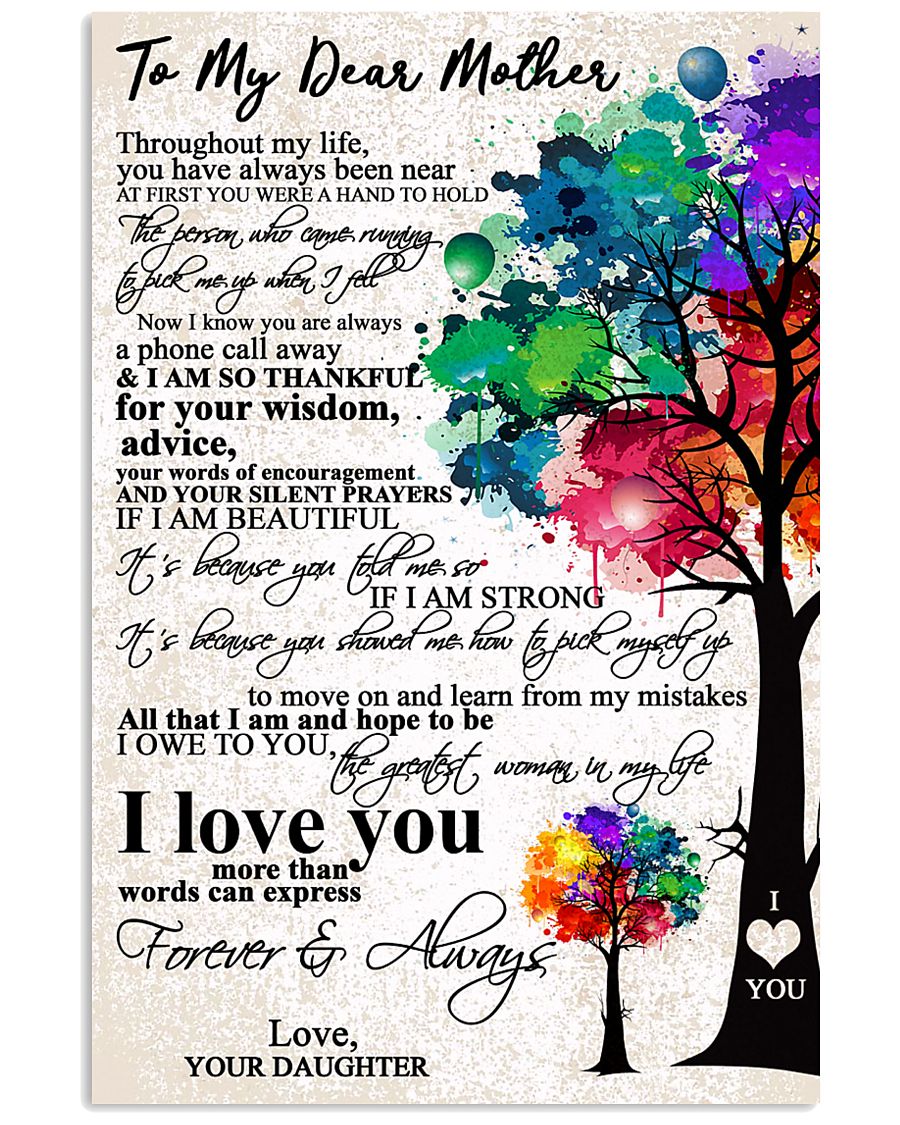 To My Dear Mother
Throughout my life,
you have always been near
AT FIRST YOU WERE A HAND TO HOLD
The person who came running
to pick me up when I fell
Now I know you are always
a phone call away
& I AM SO THANKFUL
for your wisdom,
advice,
your words of encouragement
AND YOUR SILENT PRAYERS
IF I AM BEAUTIFUL
It's because you told me so
IF I AM STRONG
It's because you showed me how to pick myself up
to move on and learn from my mistakes
All that I am and hope to be
I OWE TO YOU,
the greatest woman in my life
I love you
more than
words can express
Forever & Always
Love,
YOUR DAUGHTER
I
YOU